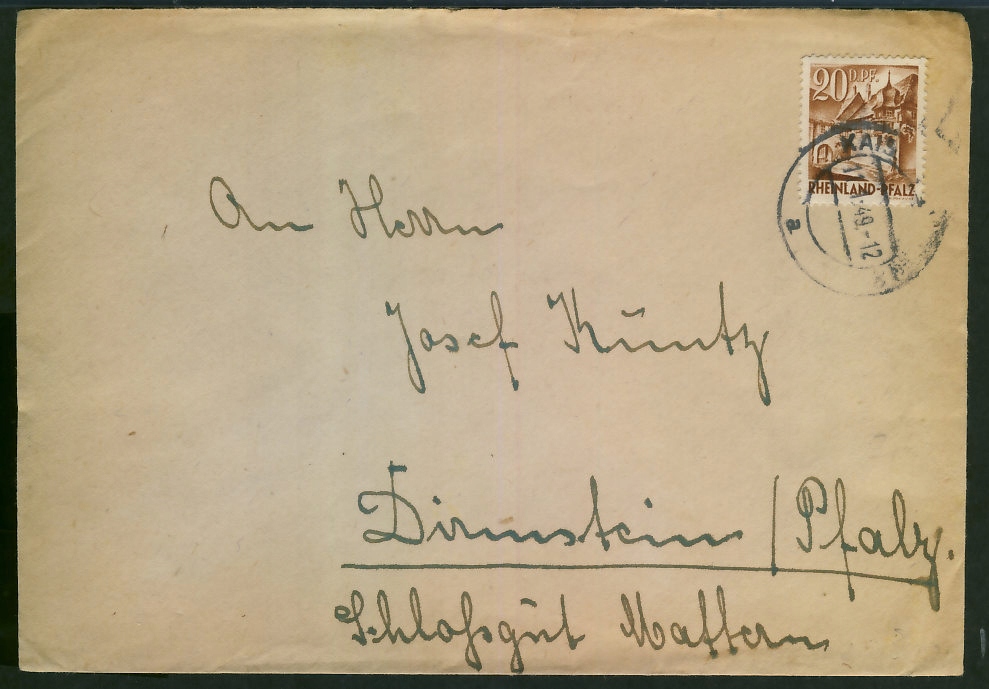 20 D.PF.
RHEINLAND-PFALZ
KAIS
49.-12
a
An Herrn
Josef Küntz
Dirmstein / Pfalz.
Schloßgut Mattern